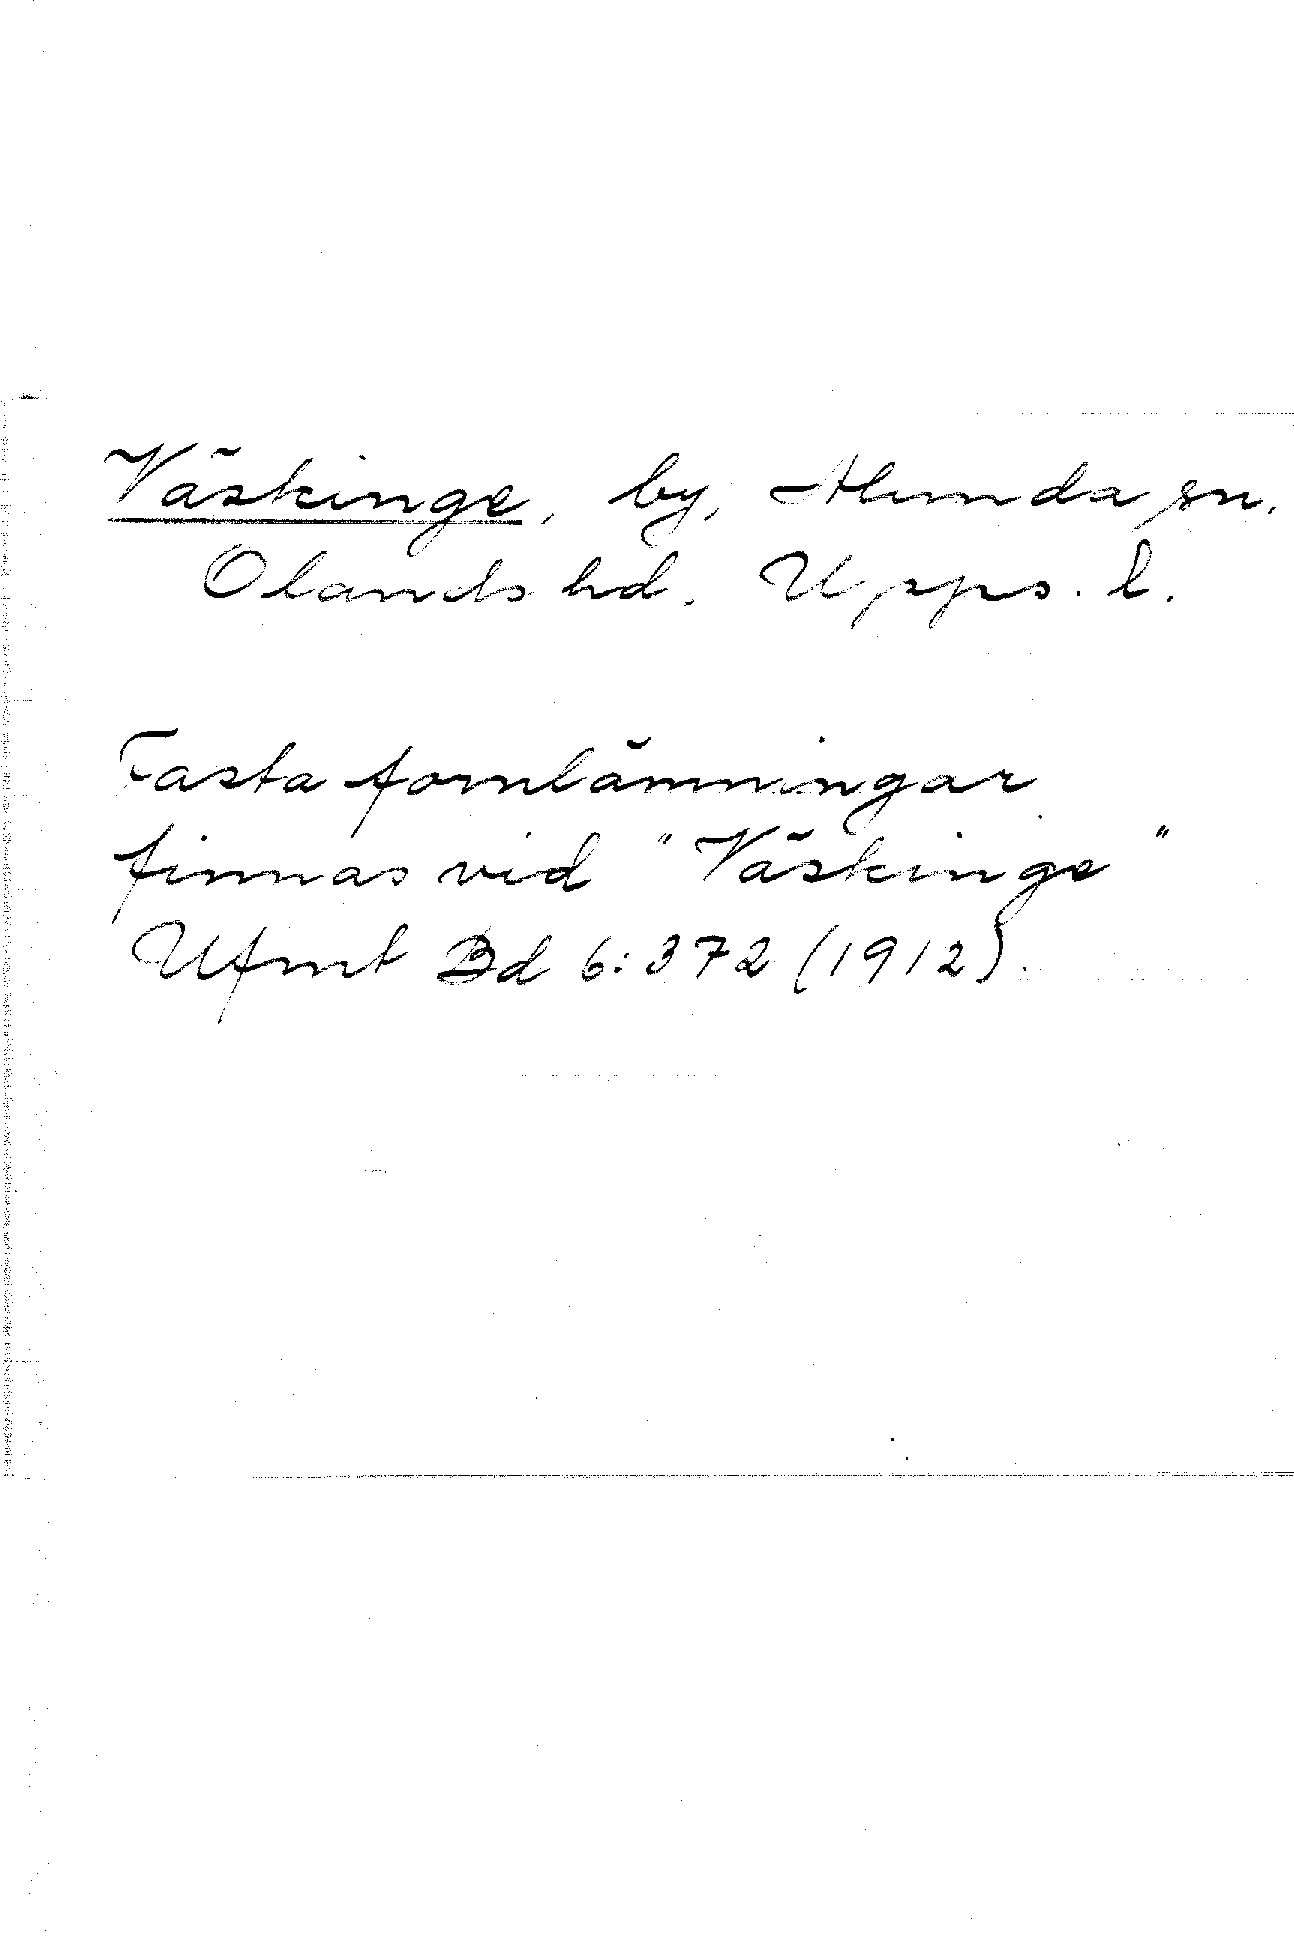 Väskinge, by, Alunda sn.
Olands hd. Upps. l.
Fasta fornlämningar
finnas vid "Väskinge"
Ufmt Bd 6:372 (1912).